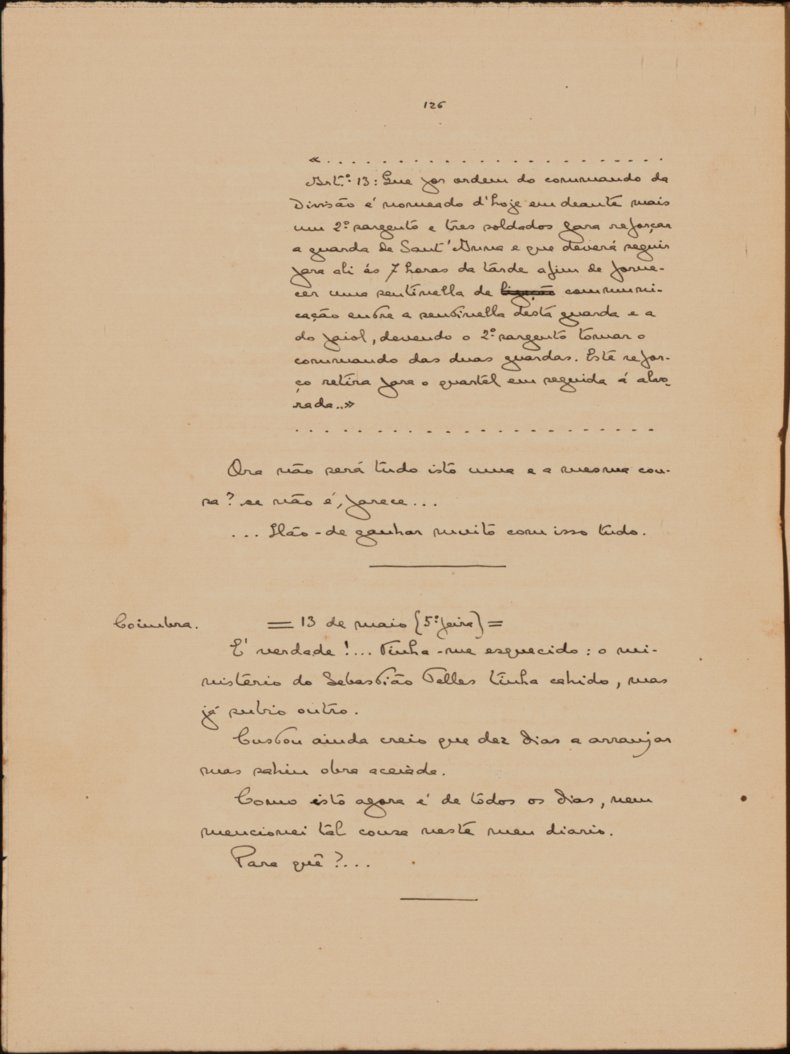 126
«. . . . . . . . . . . . . . . . . . . . . . .
Art.º 13: Que por ordem do commando da
Divisão é nomeado d'hoje em deante mais
um 2º sargento e tres soldados para reforçar
a guarda de Sant'Anna e que deverá seguir
para ali ás 7 horas da tarde afim de forne-
cer uma sentinella de ligação communi-
cação entre a sentinella desta guarda e a
do paiol, devendo o 2º sargento tomar o
commando das duas guardas. Este refor-
ço retira para o quartel em seguida á alvo-
rada..»
. . . . . . . . . . . . . . . . . . . . . . . .
Ora não será tudo isto uma e a mesma cou-
sa? se não é, parece...
... Hão-de ganhar muito com isso tudo.
Coimbra. = 13 de maio (5ª feira) =
E' verdade!... Tinha-me esquecido: o mi-
nistério do Sebastião Telles tinha cahido, mas
já subio outro.
Custou ainda creio que dez dias a arranjar
mas sahiu obra aceiada.
Como isto agora é de todos os dias, nem
mencionei tal cousa neste meu diario.
Para quê?...